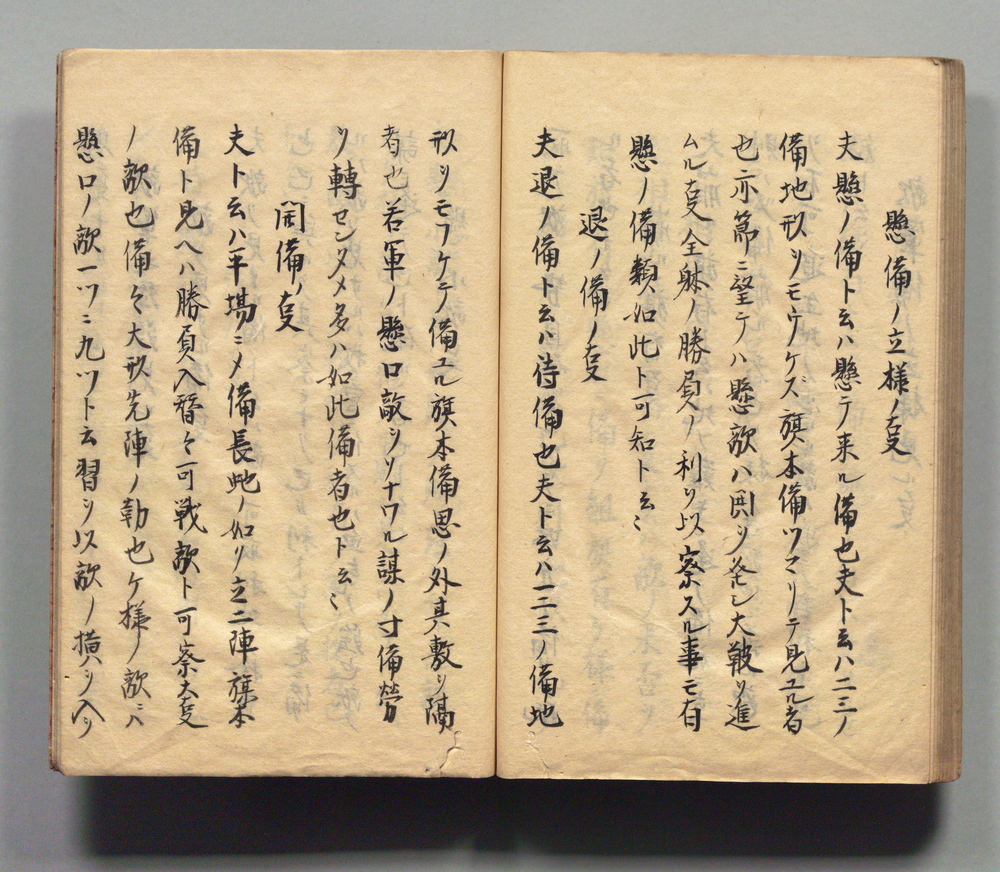 懸備ノ立様ノ叓
夫懸ノ備ト云ハ懸テ来ル備也夫ト云ハ二三ノ
備地形ヲモウケズ旗本備ツマリテ見ユル者
也亦篇ニ望テハ懸敵ハ因ヲ発シ大皷ヲ進
ムル叓全躰ノ勝負ノ利ヲ以察スル事モ有
懸ノ備類如此ト可知ト云〻
退ノ備ノ叓
夫退ノ備ト云ハ待備也夫ト云ハ一二三ノ備地
形ヲモフケテ備ユル旗本備思ノ外具敷ヲ隔
者也若軍ノ懸口敵ヲソナワル謀ノ寸備労
ヲ轉センタメ多ハ如此備者也ト云〻
備ノ叓
夫ト云ハ平場ニメ備長虵ノ如ク立二陣旗本
備ト見ヘハ勝負入替〻可戦敵ト可察大叓
ノ敵也備〻大形先陣ノ勤也ケ様ノ敵ニハ
懸口ノ敵一ツニ九ツト云習ヲ以敵ノ横ヲ入ヲ